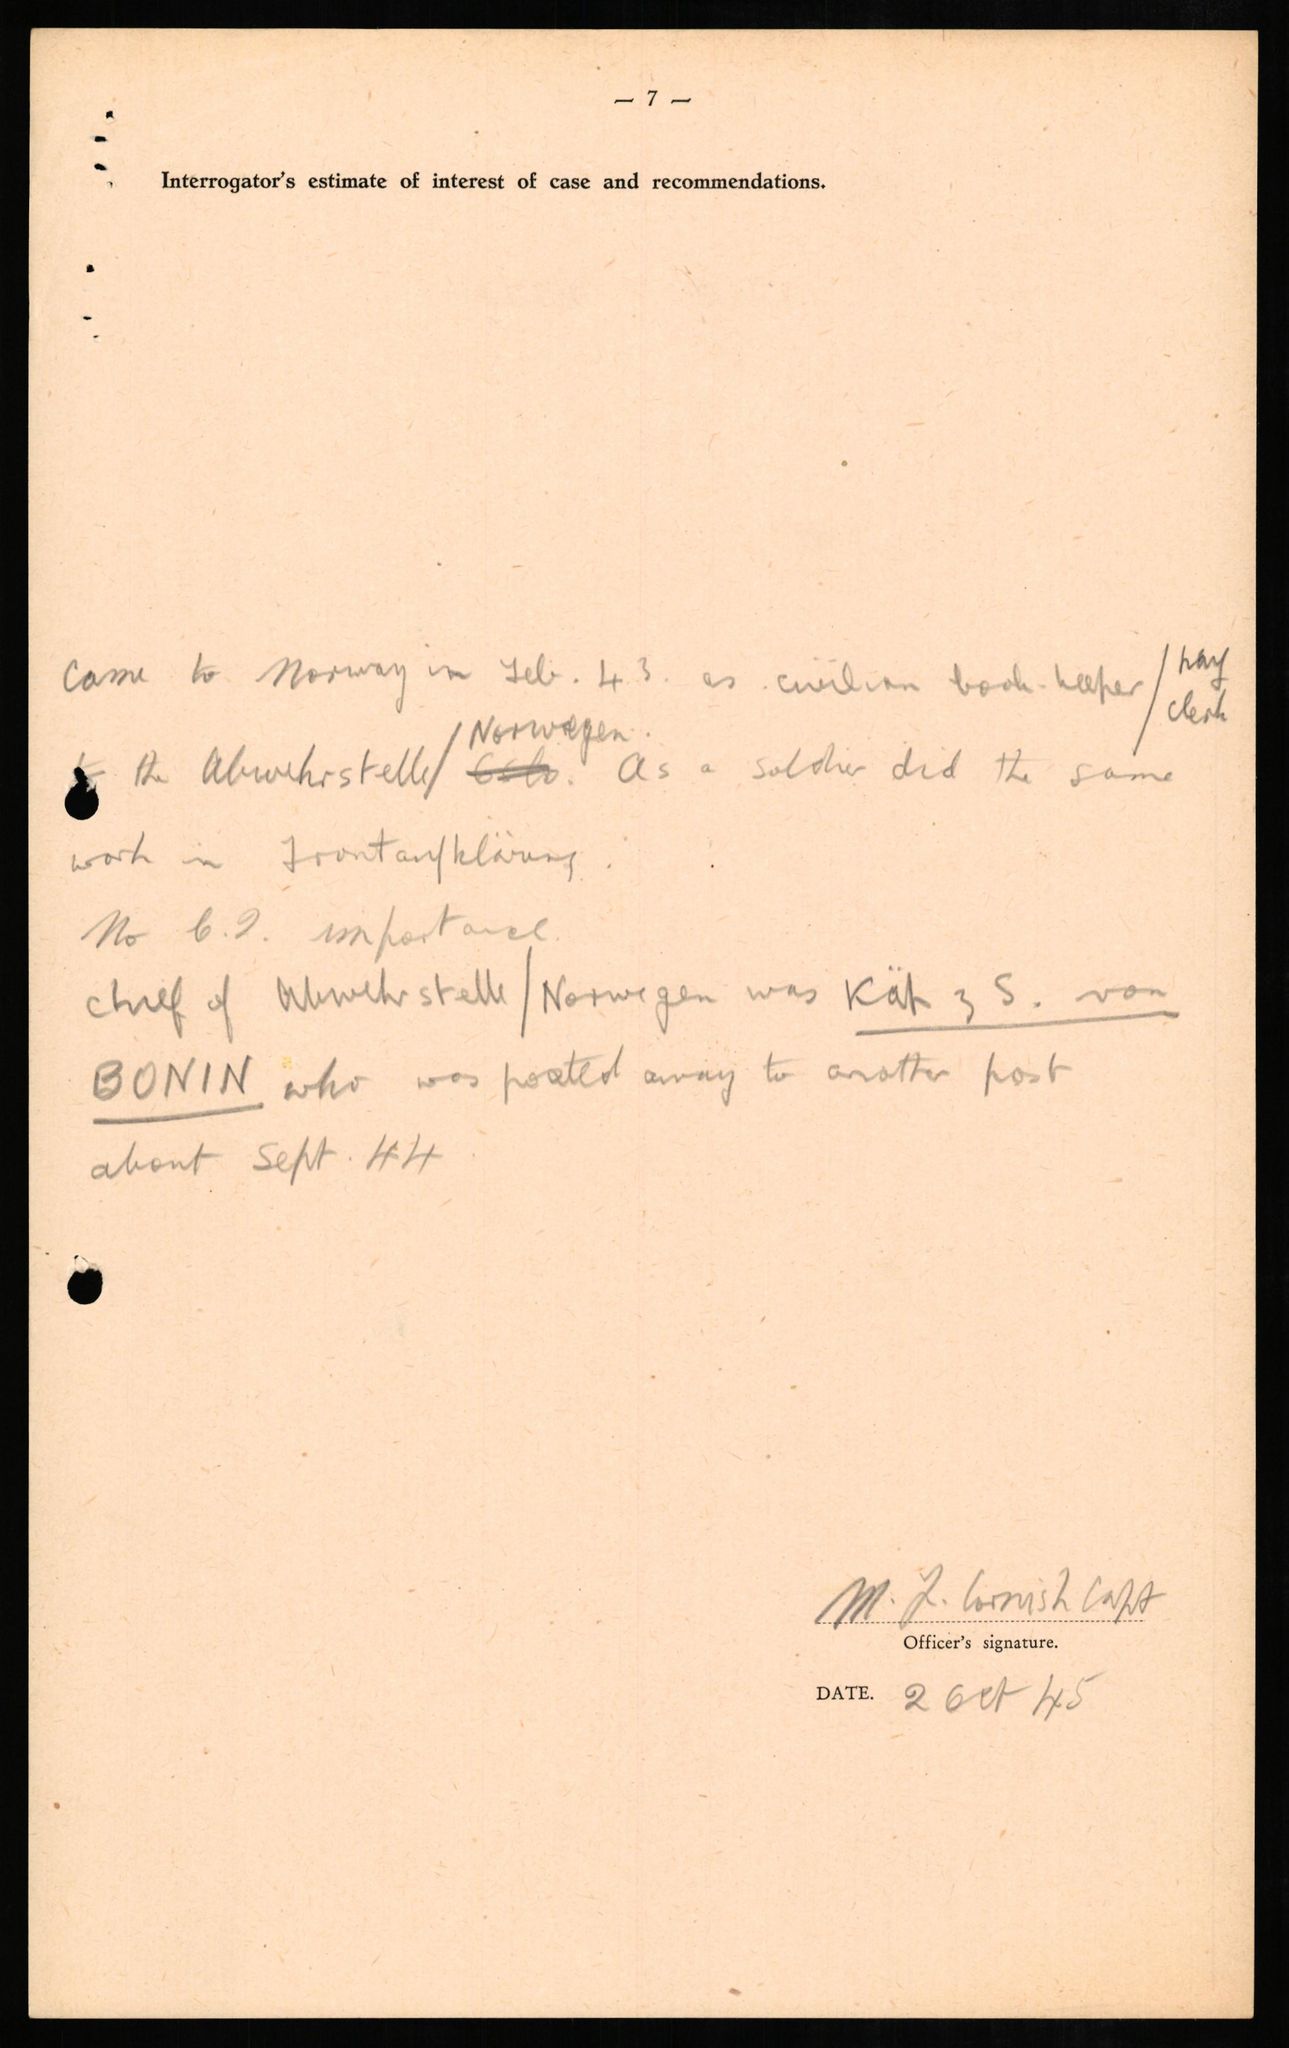 — 7 —
Interrogator's estimate of interest of case and recommendations.
Came to Norway in Feb. 43. as civilian book-keeper / pay clerk
to the Abwehrstelle / Norwegen. Oslo. As a soldier did the same
work in Frontaufklärung.
No C.I. importance.
Chief of Abwehrstelle / Norwegen was Käp z S. von
BONIN who was posted away to another post
about Sept. 44.
M. F. Cornish Capt
Officer's signature.
DATE. 2 Oct 45